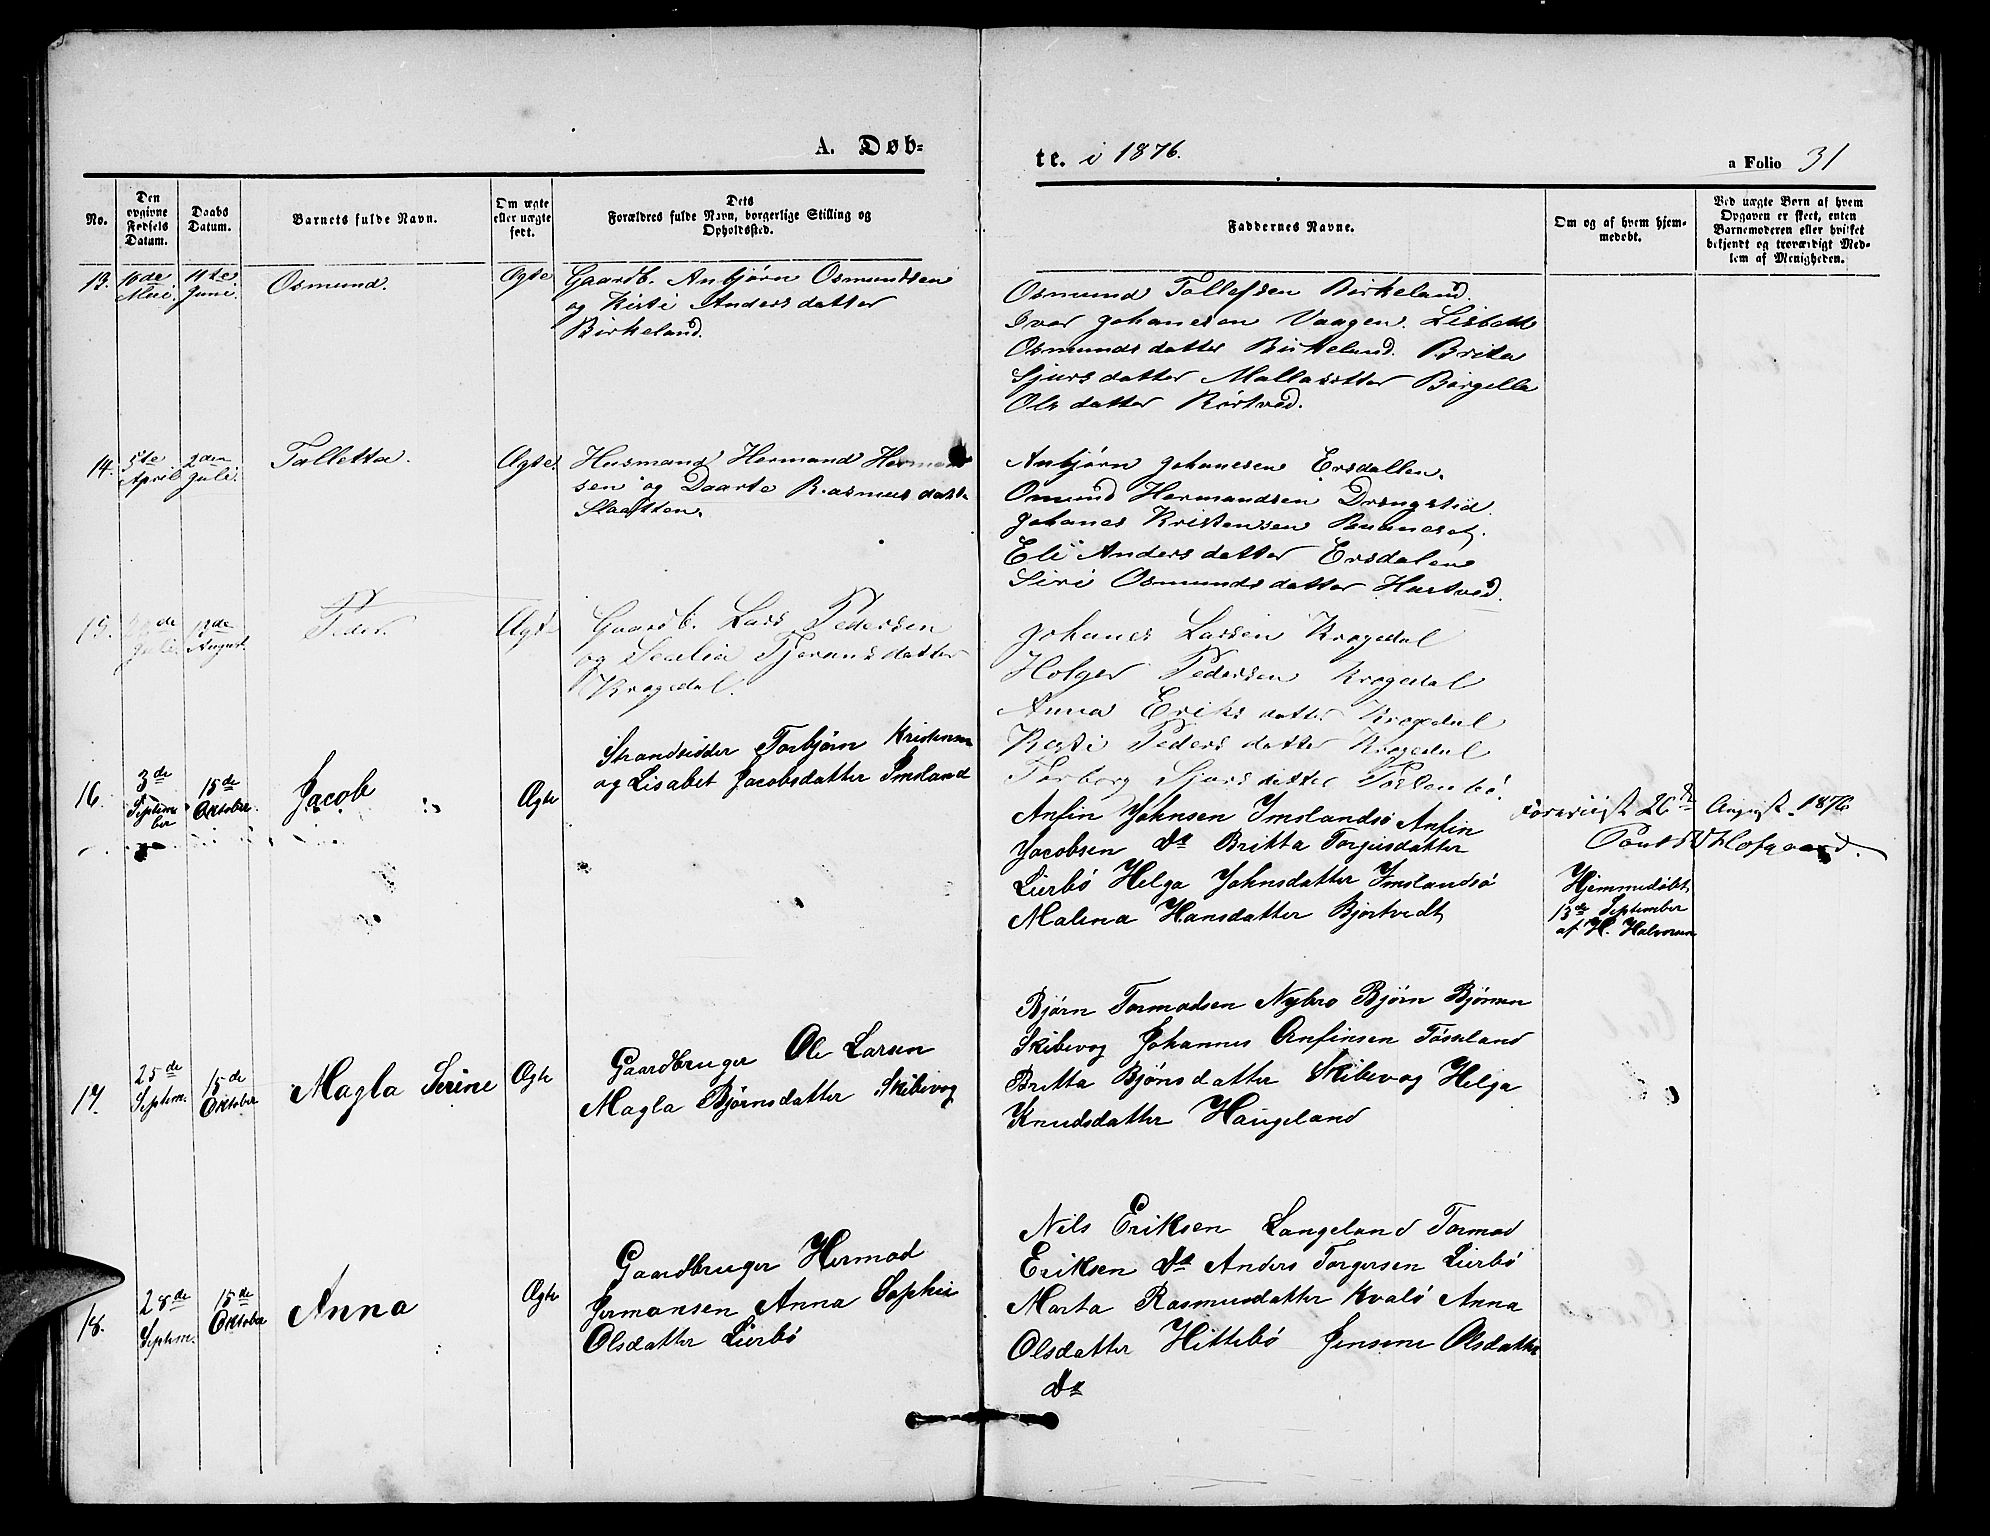 A. Døb-
te. i 1876.
a Folio 31
No.
Den
opgivne
Fødsels
Datum.
Daabs
Datum.
Barnets fulde Navn.
Om ægte
eller uægte
født.
Dets
Forældres fulde Navn, borgerlige Stilling og
Opholdssted.
Faddernes Navne.
Om og af hvem hjem-
medøbt.
Ved uægte Børn af hvem
Opgaven er skeet, enten
Barnemoderen eller hvilket
bekjendt og troværdigt Med-
lem af Menigheden.
13.
10de
Mai.
11te
Juni.
Osmund.
Ægte
Gaardb. Anbjørn Osmundsen
og Kisti Andersdatter
Birkeland.
Osmund Tollefsen Birkeland.
Ivar Johanesen Vaagen. Lisbett
Osmundsdatter Birkeland. Brita
Sjursdatter Mallasetter Børgella
Olsdatter Rørtved.
14.
5te
April
2den
Juli.
Talletta.
Ægte.
Husmand Hermand Herman
sen og Daarte Rasmusdatt.
Slaatten.
Anbjørn Johanesen Ersdallen.
Omund Hermandsen Drengstid.
Johanes Kristensen Bunneset.
Eli Andersdatter Ersdalen
Siri Osmundsdatter Hartved.
15.
Juli.
13de
August.
Peder.
Ægte
Gaardb. Lars Pedersen
og Tjeransdatter
Krogedal.
Johanes Larsen Krogedal
Holger Pedersen Krogedal
Anna Eriksdatter Krogedal
Kisti Pedersdatter Krogedal
Torborg Sjursdatter
16.
3de
Septem-
ber
15de
Oktober.
Jacob
Ægte
Strandsidder Torbjørn Kristensen
og Lisabet Jacobsdatter Imsland
Anfin Johnsen Imslandsø Anfin
Jacobsen do Britta Torgusdatter
Lierbø Helga Johnsdatter Imslandsø
Malena Hansdatter Bjortvedt
Foreviist 26de August 1876
Hofgaard.
Hjemmedøbt
13de September
af H. Halvorsen
17.
25de
Septem.
15de
Oktober
Magla Serine
Ægte
Gaardbruger Ole Larsen
Magla Bjørnsdatter Skibevog
Bjørn Tormodsen Nybro Bjørn Bjørnsen
Skibevog Johannes Anfinsen Tøsseland
Britta Bjønsdatter Skibevog Helga
Knudsdatter Haugeland
18.
28de
Septem.
15de
Oktober
Anna
Ægte
Gaardbruger Hermod
Jermansen Anna Sophie
Olsdatter Lierbø
Nils Eriksen Langeland Tormod
Eriksen do Anders Torgersen Lierbø
Marta Rasmusdatter Kvalø Anna
Olsdatter Hittebø Jensine Olsdatter
do